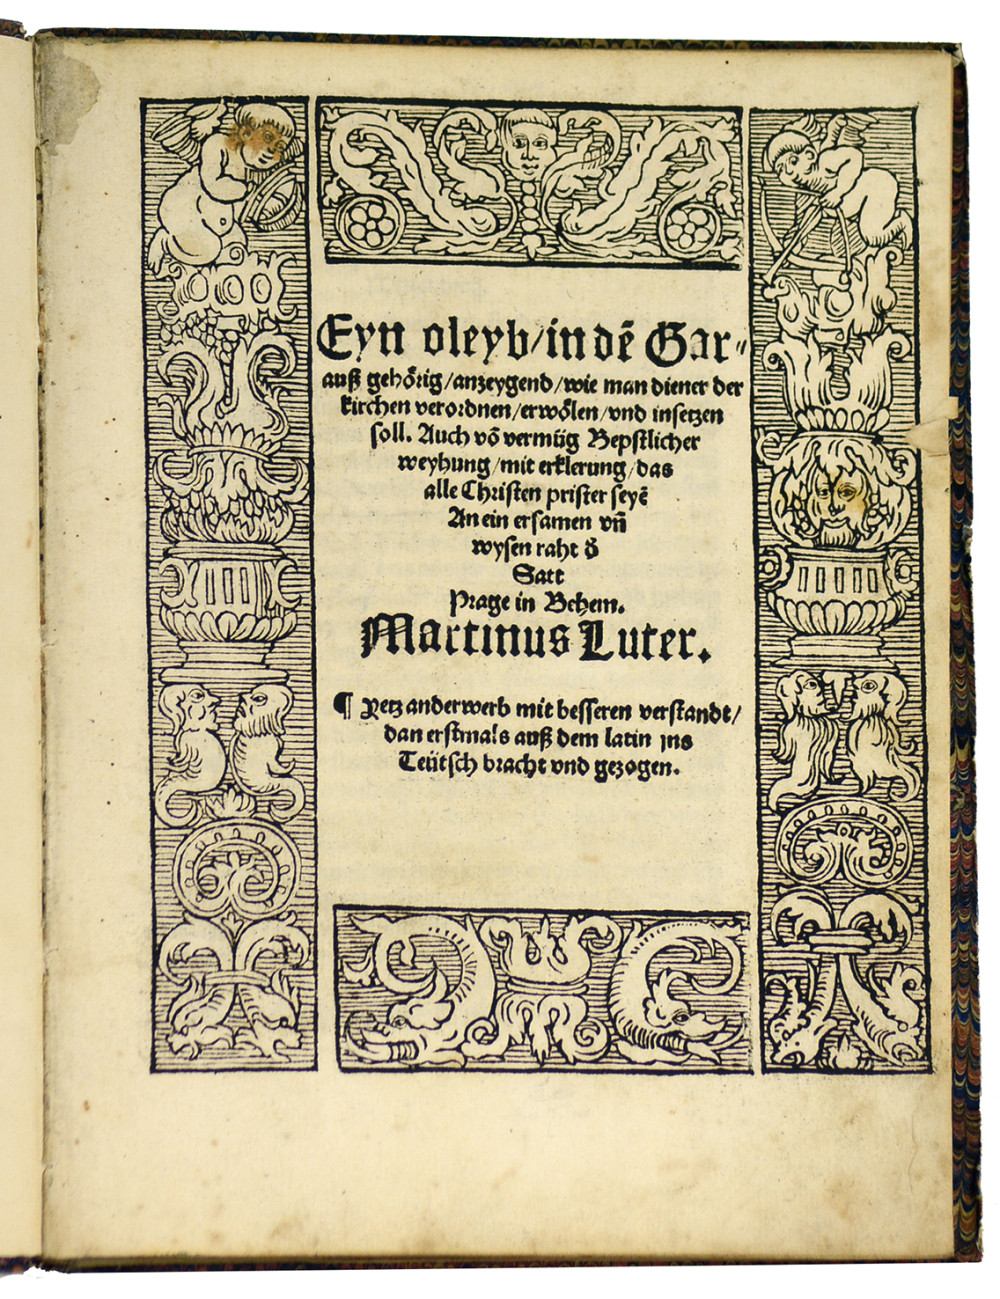 Eyn oleyb/in dē Gar⸗
auß gehoͤrig/anzeygend/wie man diener der
kirchen verordnen/erwoͤlen/vnd insetzen
soll. Auch vō vermüg Bepstlicher
weyhung/mit erklerung/das
alle Christen prister seyē
An ein ersamen vn̄
wysen raht d̄
Satt
Prage in Behem.
Martinus Luter.
¶ Yetz anderwerb mit besseren verstandt/
dan erstmals auß dem latin jns
Teütsch bracht vnd gezogen.